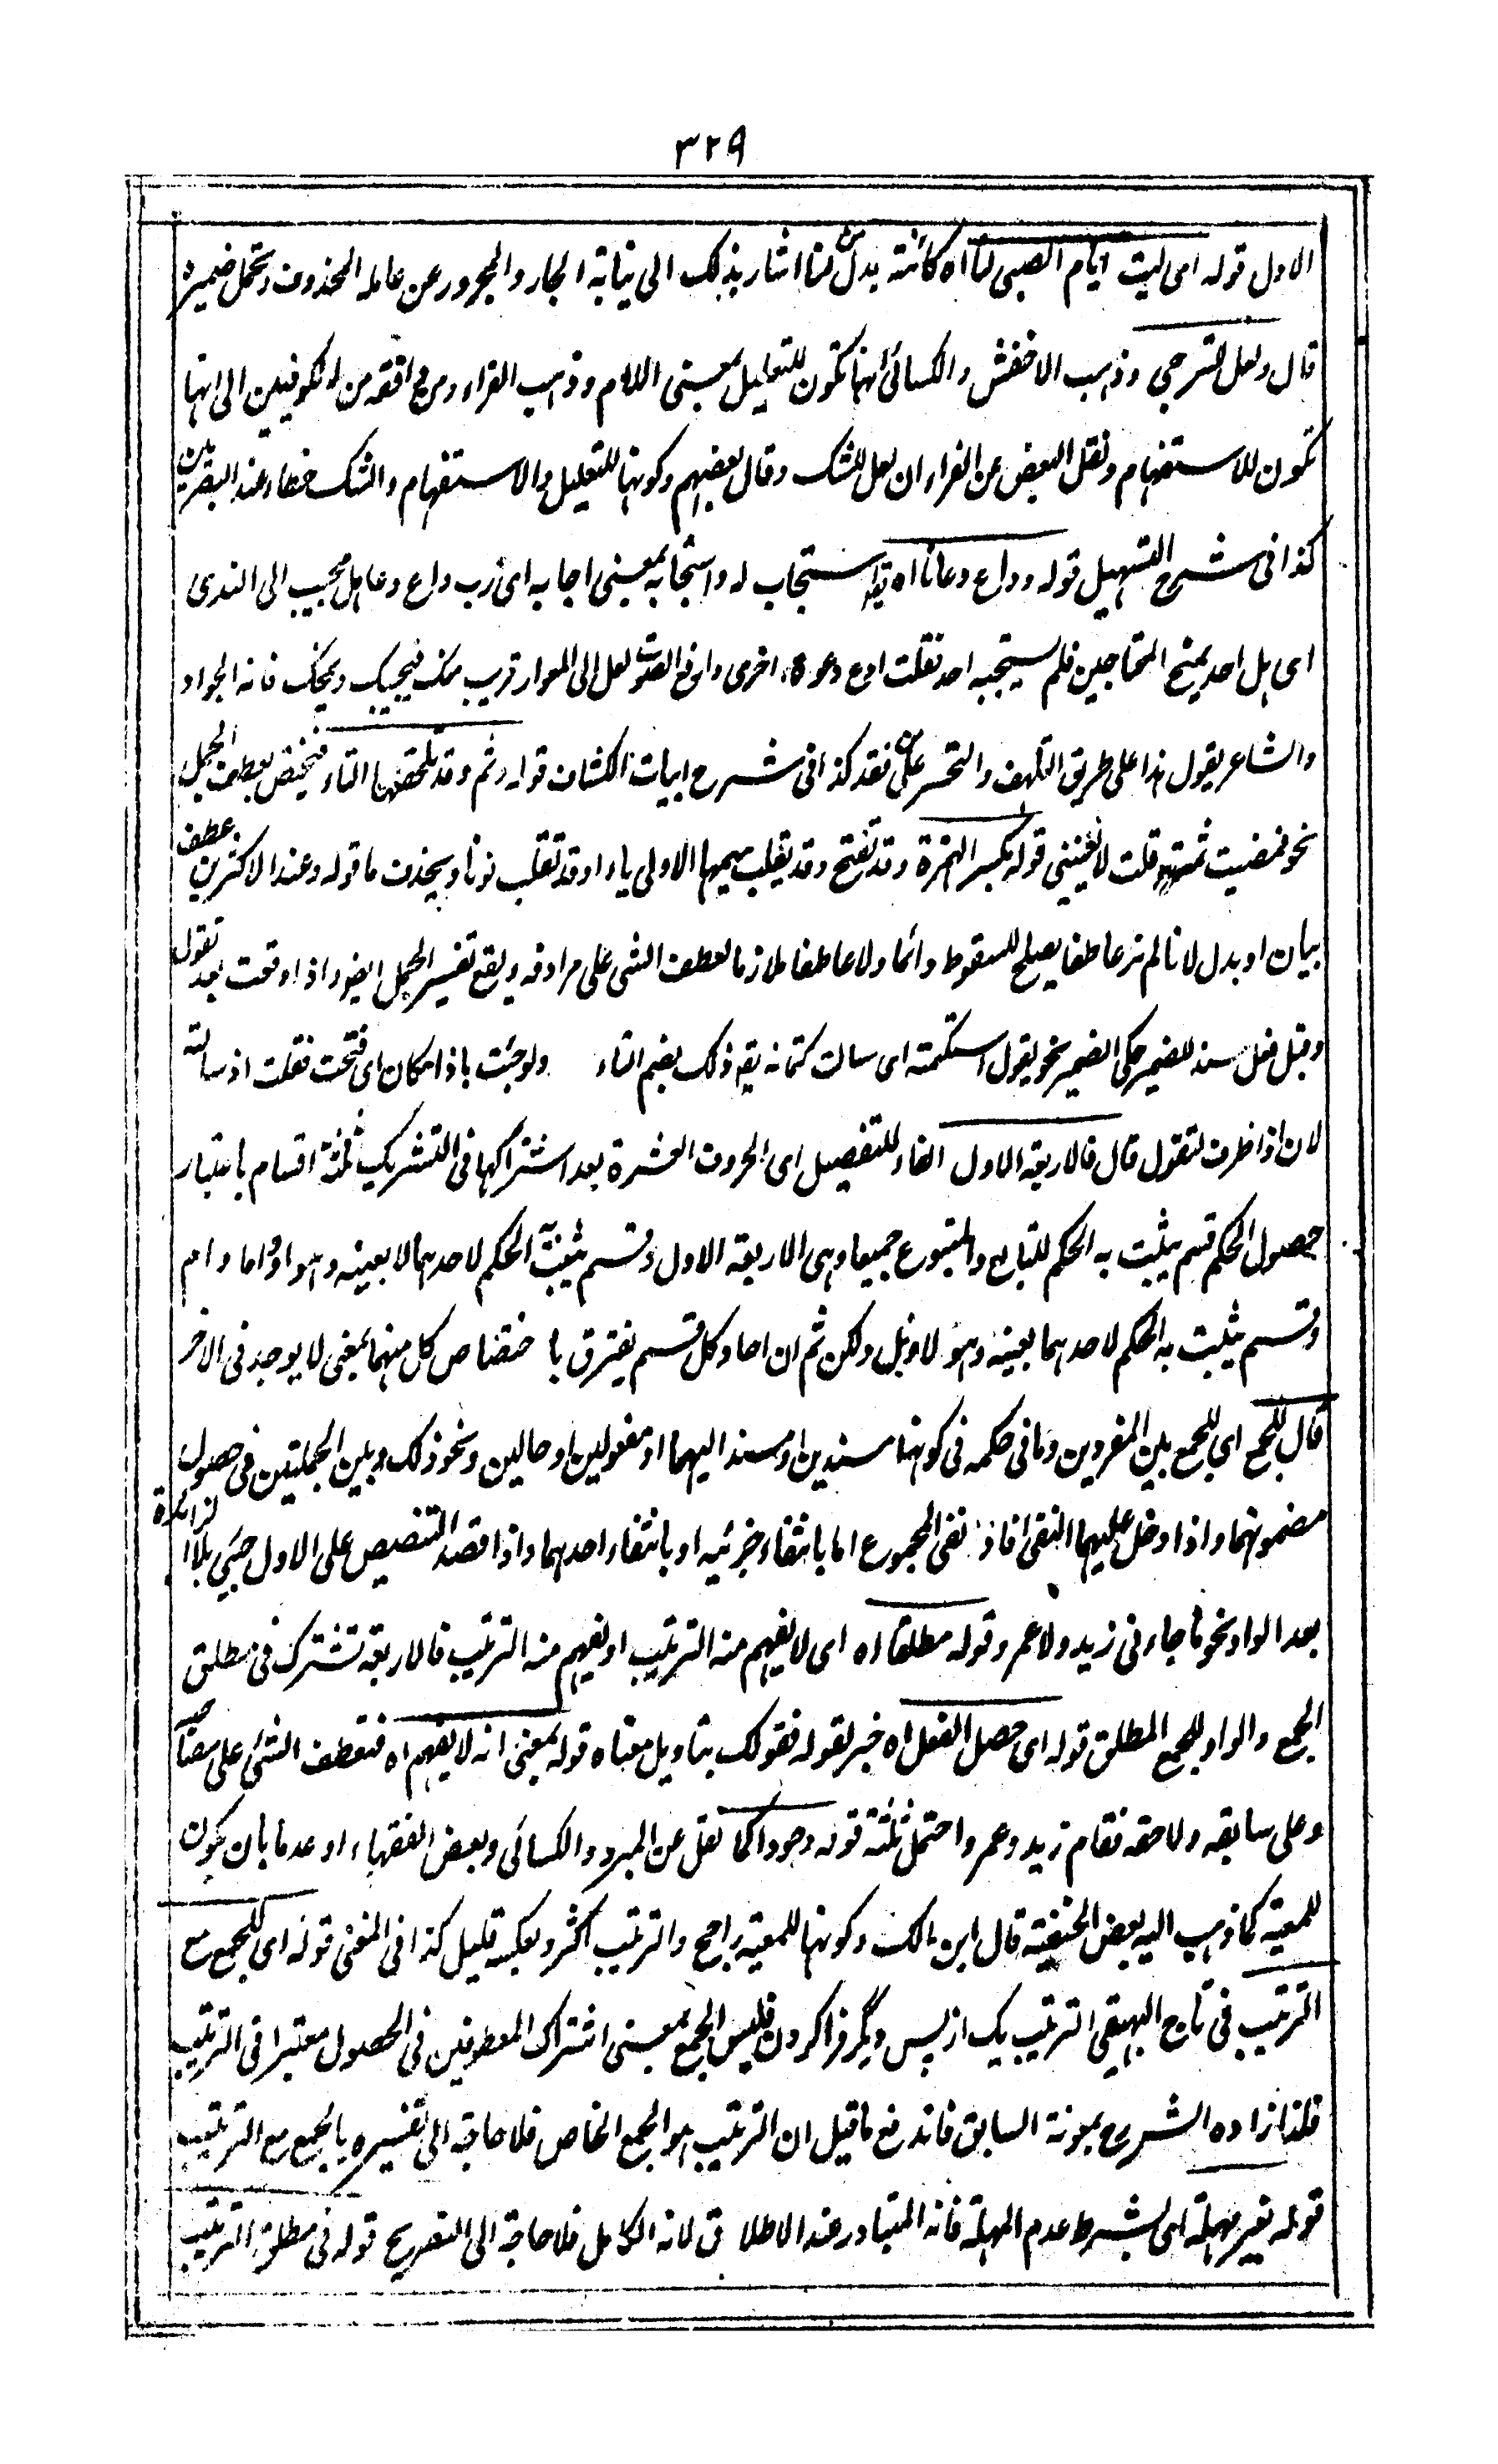 ٣٢٩
الاول قوله اى ليت ايام الصبى لنا اه كائنة بدل من لنا اشار بذلك الى نيابة الجار والمجرور عن عامله المحذوف وتحمل ضميره
قال ولعل للترجى وذهب الاخفش والكسائى انها تكون للتعليل بمعنى اللام وذهب الفراء ومن وافقه من الكوفيين الى انها
تكون للاستفهام ونقل البعض عن الفراء ان لعل للشك وقال بعضهم وكونها للتعليل والاستفهام والشك خطاء عند البصريين
كذا فى شرح التسهيل قوله وداع دعانا اه يقال استجاب له واستجابه بمعنى اجابه اى رب داع دعا هل مجيب الى الندى
اى هل احد يمنح المحتاجين فلم يستجبه احد فقلت ادع دعوة اخرى وارفع الصوت لعل ابى المغوار قريب منك فيجيبك ويمنحك فانه الجواد
والشاعر يقول هذا على طريق التلهف والتحسر على من فقد كذا فى شرح ابيات الكشاف قوله وثم وقد تلحقها التاء فيختص بعطف الجمل
نحو فمضيت ثمت قلت لا يعنينى قوله بكسر الهمزة وقد تفتح وقد يقلب ميمها الاولى ياء او قد تقلب نونا ويحذف ما قوله وعند الاكثرين عطف
بيان او بدل لانا لم نر عاطفا يصلح للسقوط دائما ولا عاطفا ملازما لعطف الشئ على مرادفه ويقع تفسير الجمل ايضا واذا وقعت بعد تقول
وقبل فعل مسند للضمير حكى الضمير نحو يقول استكتمته اى سالت كتمانه يقع ذلك بضم التاء ولو جئت باذا مكان اى فتحت فقلت اذ سالته
لان اذا ظرف لتقول قال فالاربعة الاول الفاء للتفصيل اى الحروف العشرة بعد اشتراكها فى التشريك ثلثة اقسام باعتبار
حصول الحكم قسم يثبت به الحكم للتابع والمتبوع جميعا وهى الاربعة الاول وقسم يثبت الحكم لاحدهما لا بعينه وهو او واما وام
وقسم يثبت به الحكم لاحدهما بعينه وهو لا وبل ولكن ثم ان احاد كل قسم يفترق باختصاص كل منهما بمعنى لا يوجد فى الاخر
قال للجمع اى للجمع بين المفردين وما فى حكمه فى كونها مسندين او مسندا اليهما او مفعولين او حالين ونحو ذلك وبين الجملتين فى حصول
مضمونهما واذا دخل عليهما النفى افاد نفى المجموع اما بانتفاء جزئيه او بانتفاء احدهما واذا قصد التنصيص على الاول جيئ بلا الزائدة
بعد الواو نحو ما جاءنى زيد ولا عمرو قوله مطلقا اه اى لا يفهم منه الترتيب او يفهم منه الترتيب فالاربعة تشترك فى مطلق
الجمع والواو للجمع المطلق قوله اى حصل الفعل اه خبر لقوله فقولك بتاويل معناه قوله بمعنى انه لا يفهم اه فتعطف الشئ على مصاحبه
وعلى سابقه ولاحقه فقام زيد وعمرو احتمل ثلثة قوله وجودا كما نقل عن المبرد والكسائى وبعض الفقهاء او عدما بان يكون
للمعية كما ذهب اليه بعض الحنفية قال ابن مالك وكونها للمعية راجح والترتيب اكثر ولعكسه قليل كذا فى المغنى قوله اى للجمع مع
الترتيب فى تاج البيهقى الترتيب يك از پس ديگر فراكردن فليس الجمع بمعنى اشتراك المعطوفين فى الحصول معتبرا فى الترتيب
فلذا زاده الشرح بمونة السابق فاندفع ما قيل ان الترتيب هو الجمع الخاص فلا حاجة الى تفسيره بالجمع مع الترتيب
قوله بغير مهلة اى بشرط عدم المهلة فانه المتبادر عند الاطلاق لانه الكامل فلا حاجة الى التصريح قوله فى مطلق الترتيب